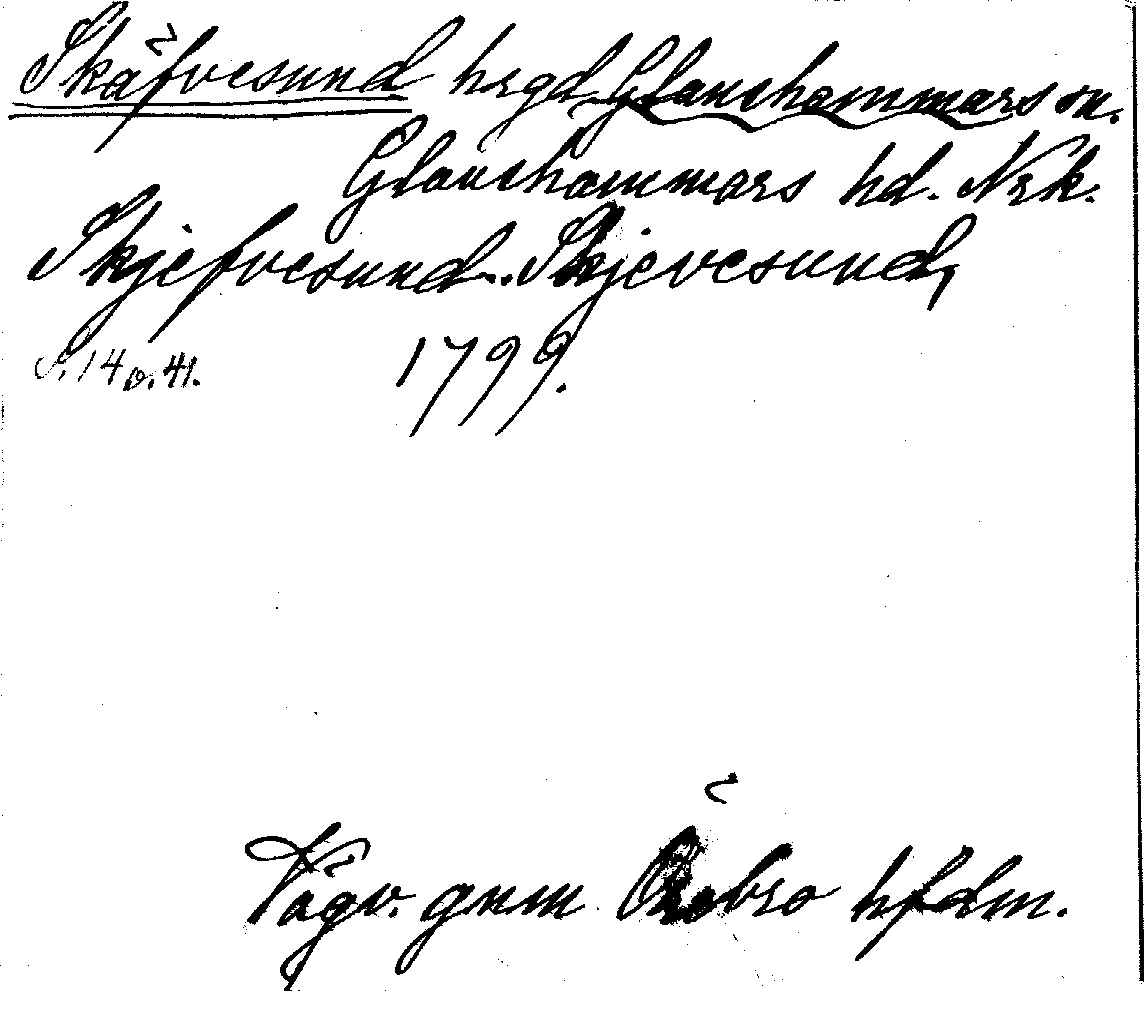 Skäfvesund hrgd Glanshammars sn.
Glanshammars hd. Nrk.
Skjefvesund.. Skjevesund,
S. 14 o. 41. 1799.
Vägv. gnm Örebro hfdm.